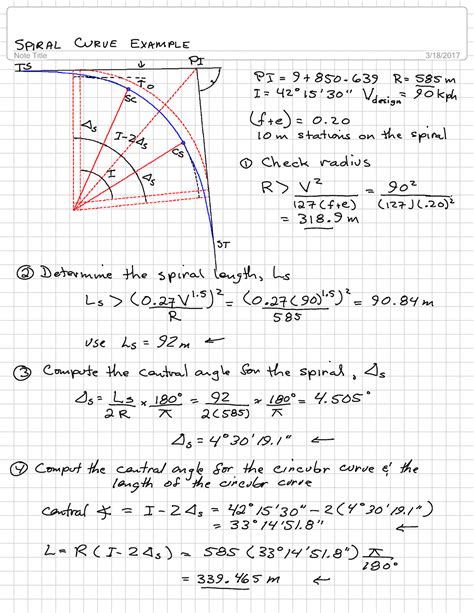 SPIRAL CURVE EXAMPLE
Note Title
3/18/2017
TS
PI
To
SC
Δs
I-2Δs
CS
I
Δs
ST
PI = 9+850.639 R= 585 m
I = 42° 15' 30" Vdesign = 90 kph
(f+e) = 0.20
10 m stations on the spiral
① Check radius
R > V² / 127(f+e) = 90² / (127)(.20)²
= 318.9 m
② Determine the spiral length, Ls
Ls > (0.27V^1.5)² / R = (0.27(90)^1.5)² / 585 = 90.84 m
use Ls = 92 m ←
③ Compute the central angle for the spiral, Δs
Δs = Ls / 2R × 180° / π = 92 / 2(585) × 180° / π = 4.505°
Δs = 4° 30' 19.1" ←
④ Comput the central angle for the circular curve & the
length of the circular curve
central ∡ = I - 2Δs = 42° 15' 30" - 2(4° 30' 19.1")
= 33° 14' 51.8" ←
L = R(I-2Δs) = 585(33° 14' 51.8") π / 180°
= 339.465 m ←